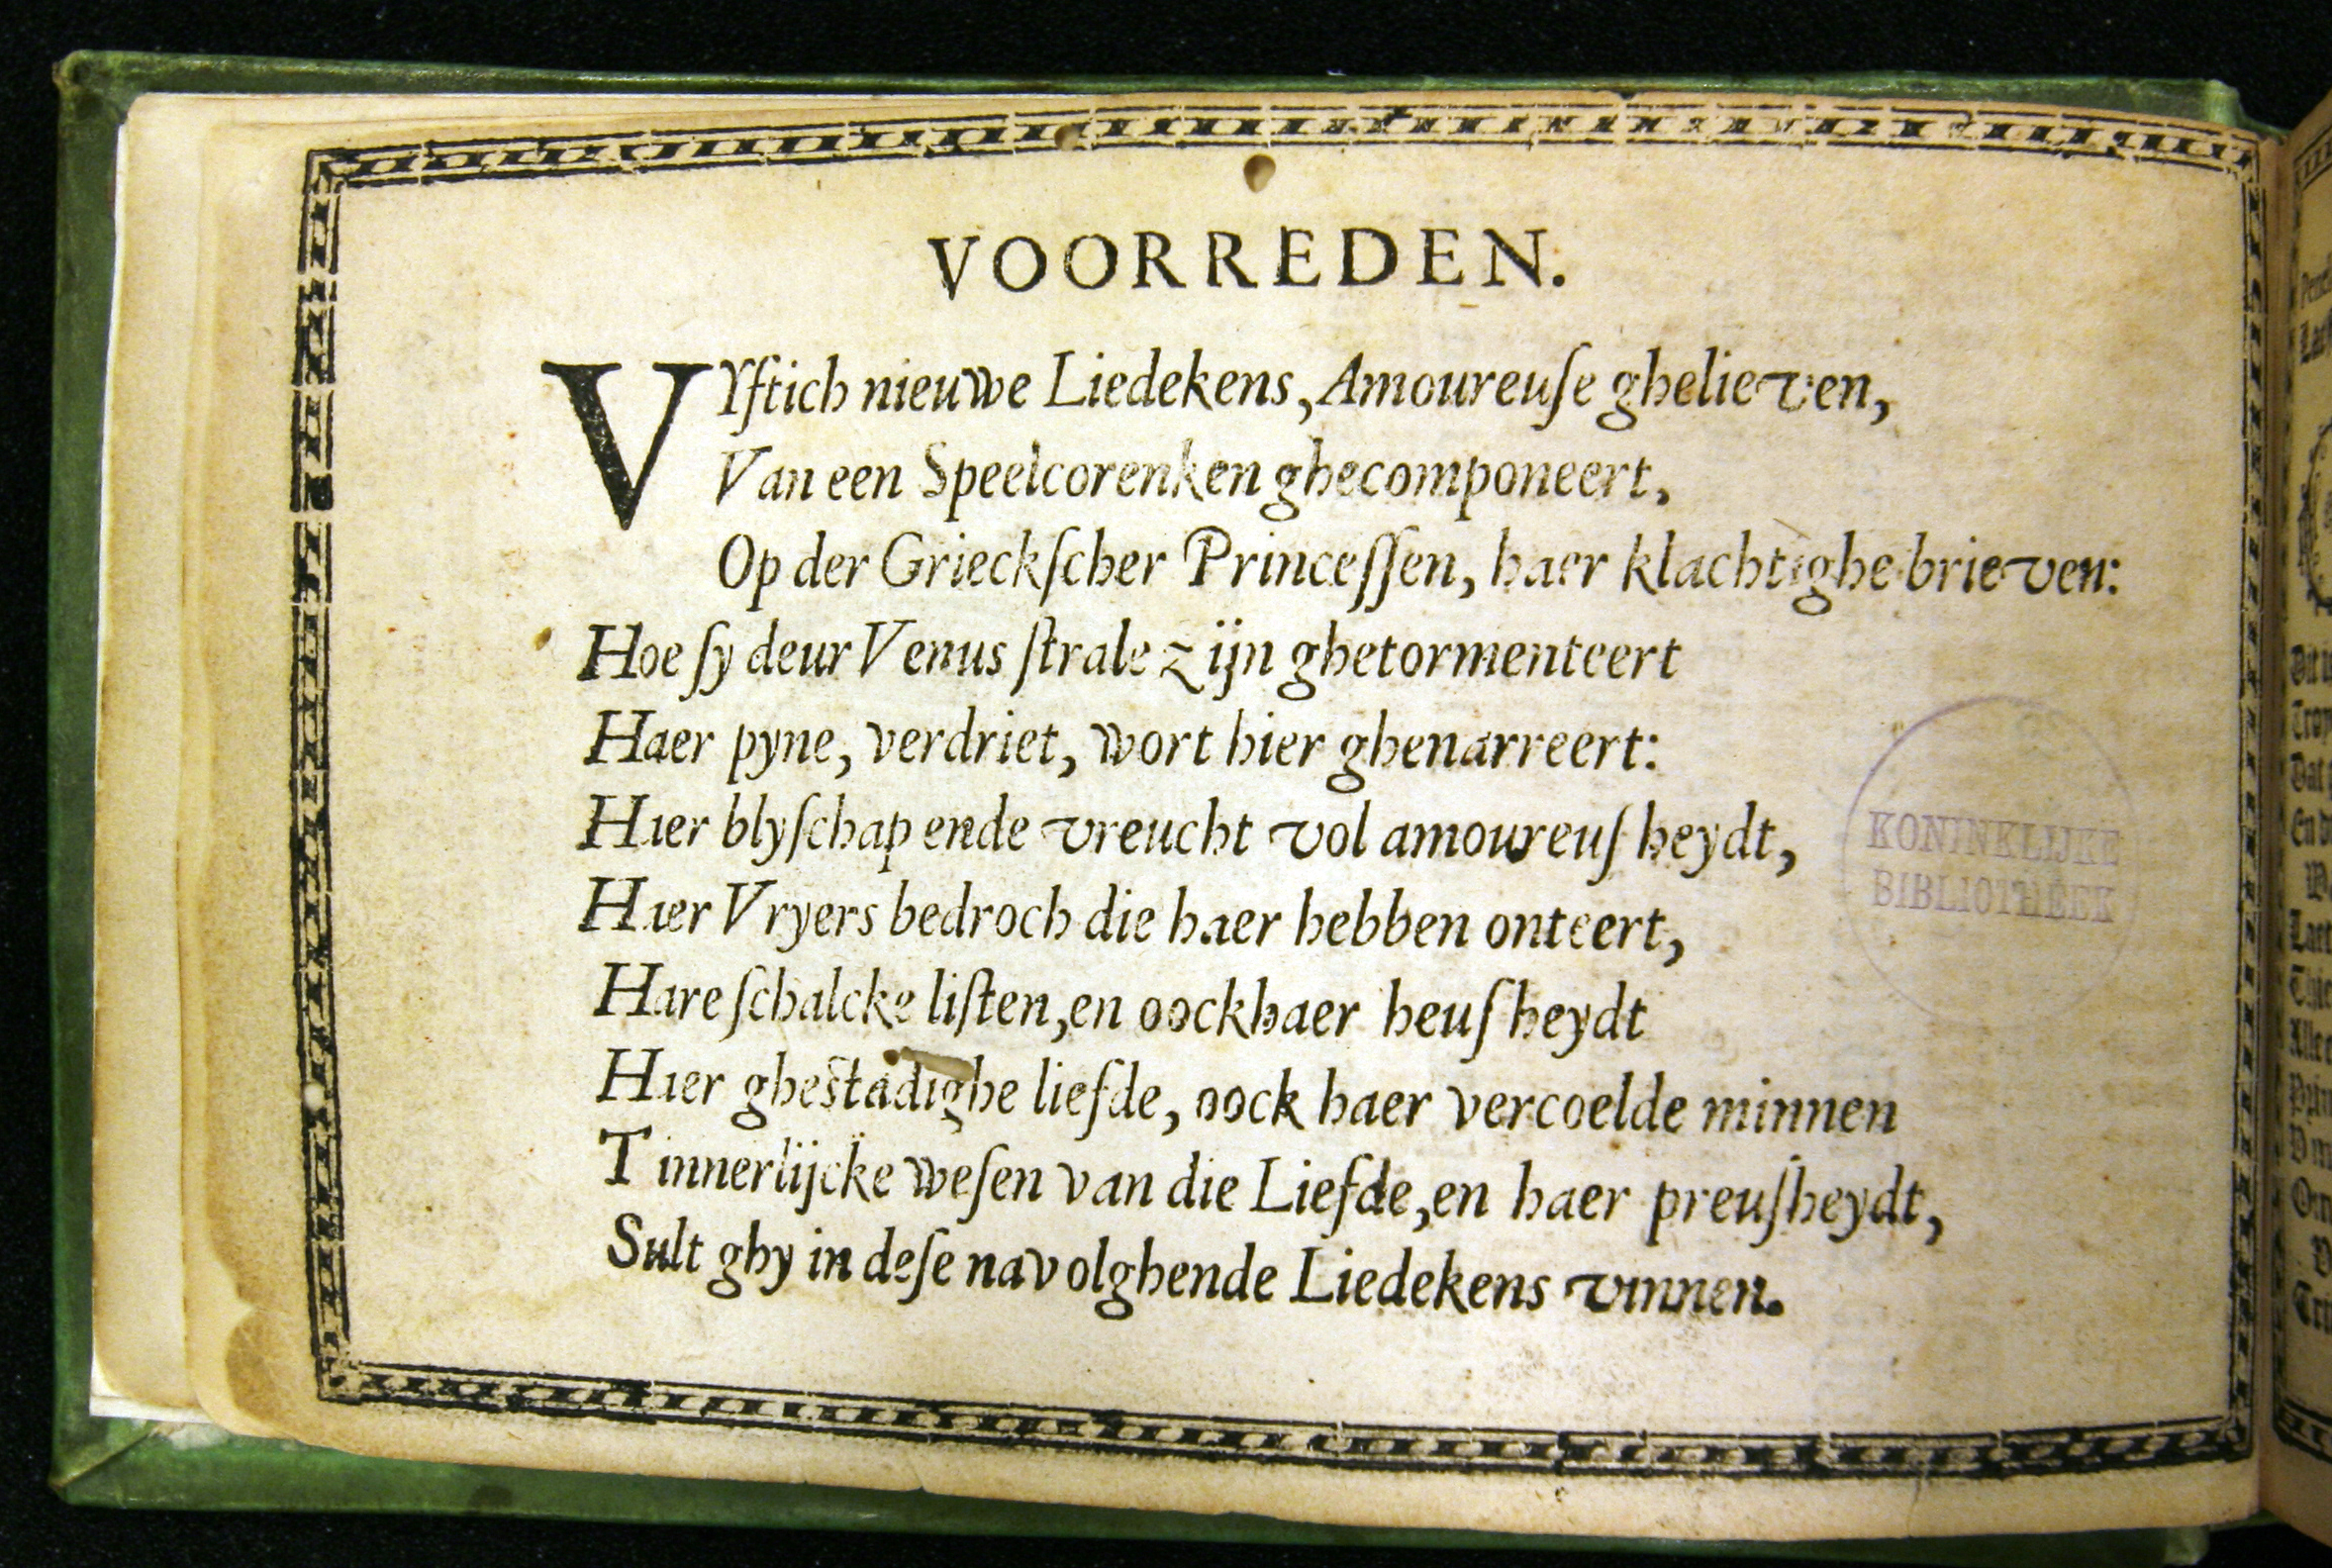 VOORREDEN.
VYftich nieuwe Liedekens, Amoureuſe ghelieven,
Van een Speelcorenken ghecomponeert,
Op der Grieckſcher Princeſſen, haer klachtighe brieven:
Hoe ſy deur Venus ſtrale zijn ghetormenteert
Haer pyne, verdriet, wort hier ghenarreert:
Hier blyſchap ende vreucht vol amoureuſheydt,
Hier Vryers bedroch die haer hebben onteert,
Hare ſchalcke liſten, en oock haer heuſheydt
Hier gheſtadighe liefde, oock haer vercoelde minnen
T innerlijcke weſen van die Liefde, en haer preuſheydt,
Sult ghy in deſe navolghende Liedekens vinnen.
KONINKLIJKE
BIBLIOTHEEK